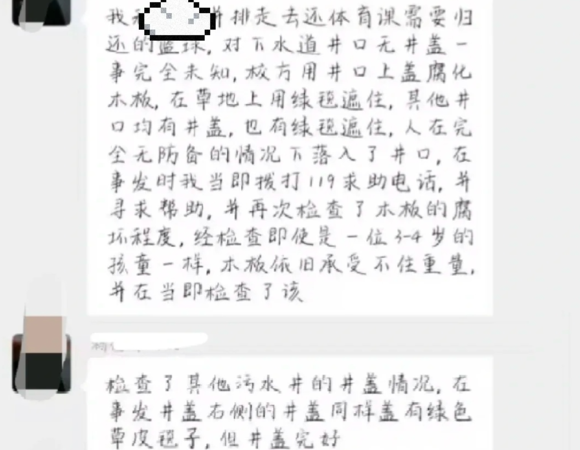 我和 并排走去还体育课需要归
还的篮球,对下水道井口无井盖一
事完全未知,校方用井口上盖腐化
木板,在草地上用绿毯遮住,其他井
口均有井盖,也有绿毯遮住,人在完
全无防备的情况下落入了井口,在
事发时我当即拨打119求助电话,并
寻求帮助,并再次检查了木板的腐
坏程度,经检查即便是一位3-4岁的
孩童一样,木板依旧承受不住重量,
并在当即检查了该
检查了其他污水井的井盖情况,在
事发井盖右侧的井盖同样盖有绿色
草皮毯子,但井盖完好